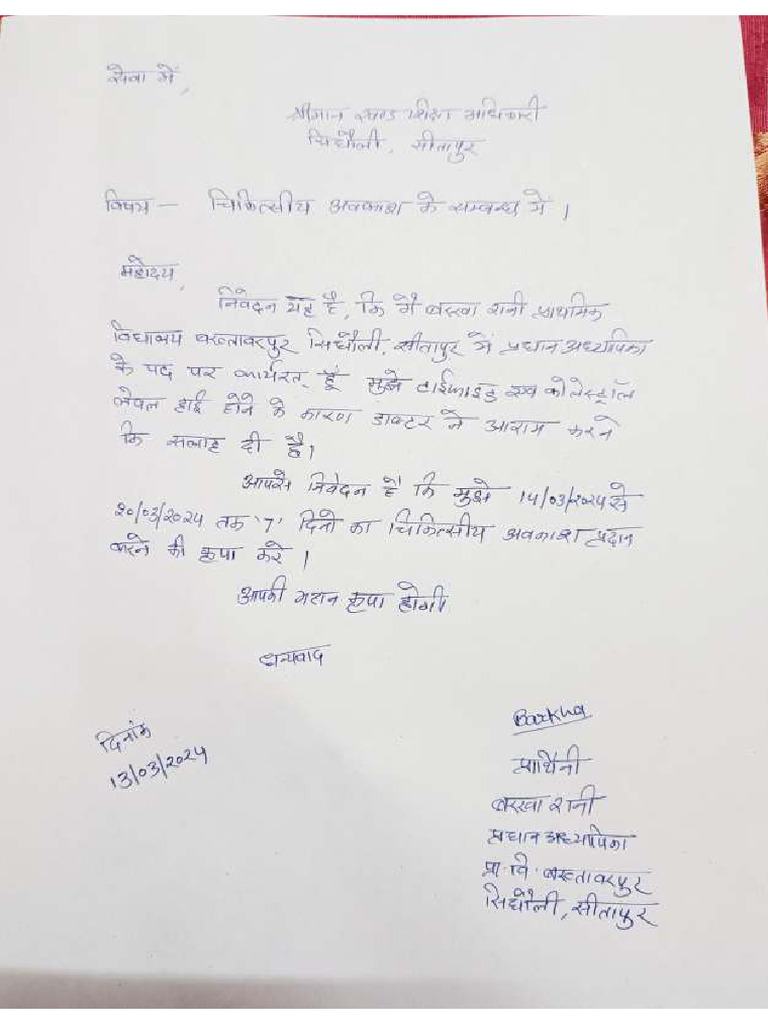 सेवा में,
श्रीमान खण्ड शिक्षा अधिकारी
सिधौली, सीतापुर
विषय — चिकित्सीय अवकाश के सम्बन्ध में ।
महोदय,
निवेदन यह है, कि मै बरखा रानी प्राथमिक
विद्यालय बख्तावरपुर सिधौली, सीतापुर में प्रधान अध्यापिका
के पद पर कार्यरत् हूँ मुझे टाईफाइड एवं कोलेस्ट्रॉल
लेवल हाई होने के कारण डाक्टर ने आराम करने
कि सलाह दी है।
आपसे निवेदन है कि मुझे 14/03/2024 से
20/03/2024 तक '7' दिनो का चिकित्सीय अवकाश प्रदान
करने की कृपा करे ।
आपकी महान कृपा होगी।
धन्यवाद
दिनांक
13/03/2024
Barkha
प्रार्थिनी
बरखा रानी
प्रधान अध्यापिका
प्रा॰ वि॰ बख्तावरपुर
सिधौली, सीतापुर